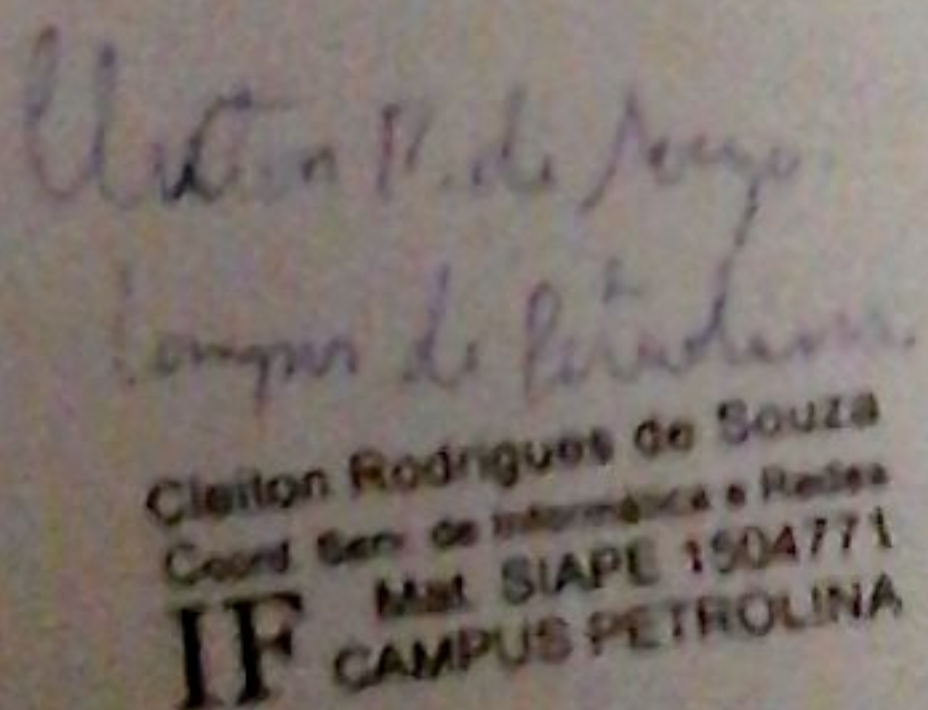 Cleiton R. de Souza
Campus de Petrolina.
Cleiton Rodrigues de Souza
Coord Serv. de Informática e Redes
Mat. SIAPE 1504771
IF CAMPUS PETROLINA